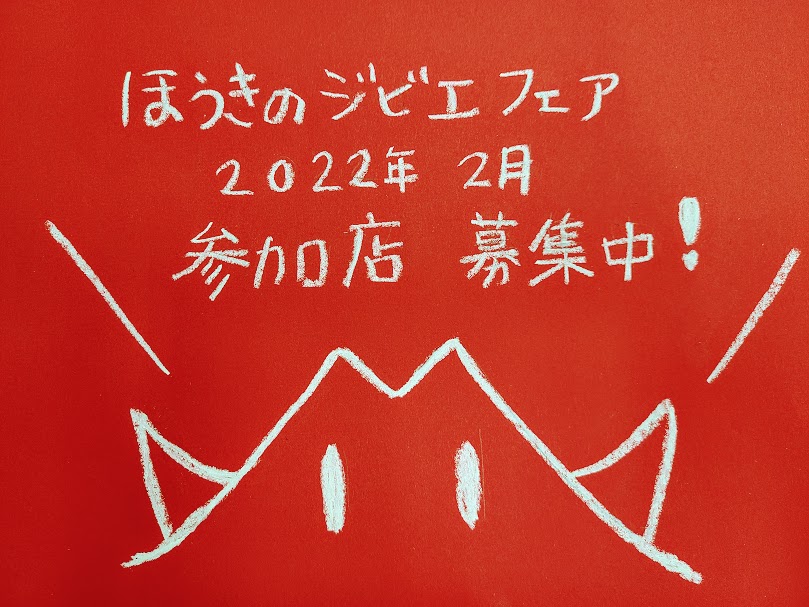 ほうきのジビエフェア
2022年 2月
参加店 募集中!